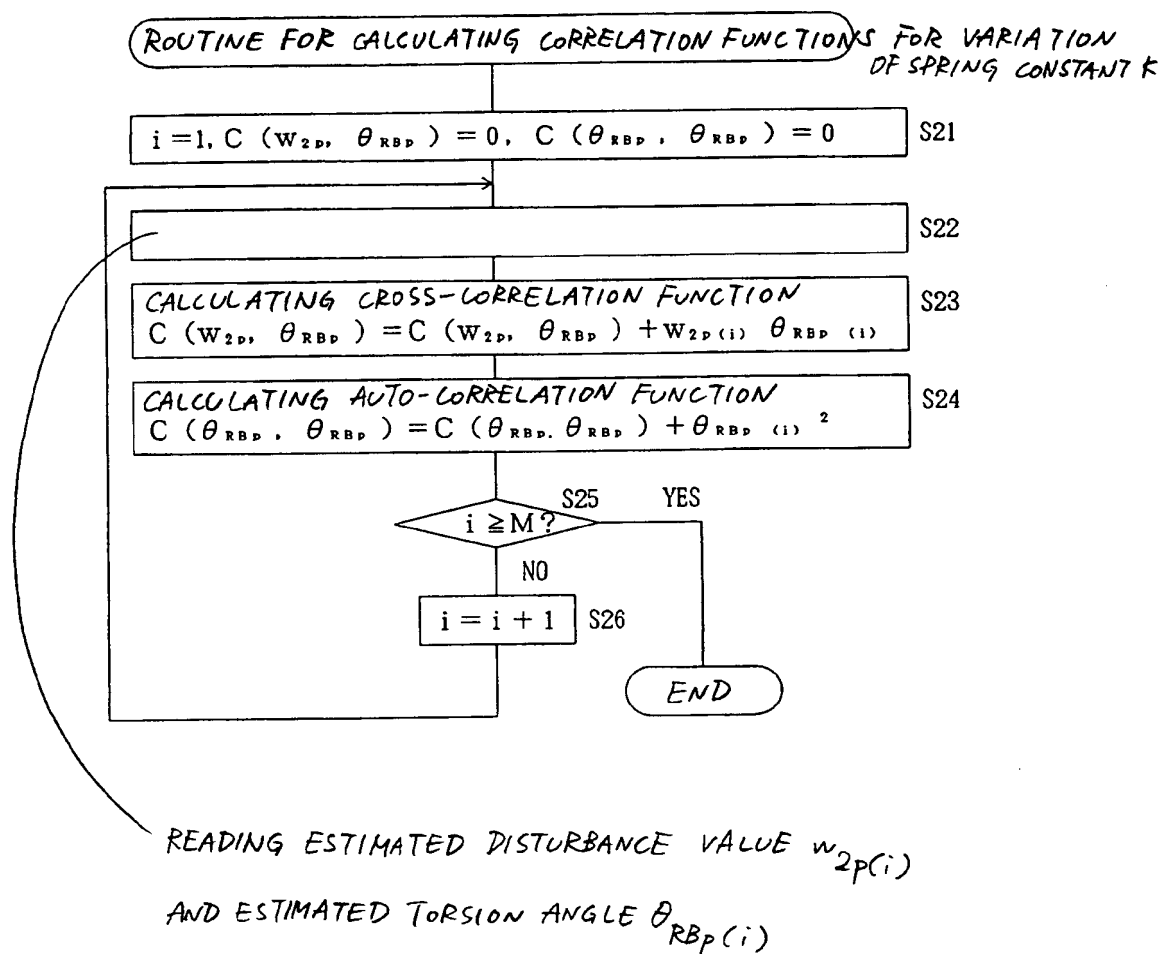 ROUTINE FOR CALCULATING CORRELATION FUNCTIONS FOR VARIATION
OF SPRING CONSTANT K
i = 1, C (w₂ₚ, θ_RBp) = 0, C (θ_RBp, θ_RBp) = 0 S21
S22
CALCULATING CROSS-CORRELATION FUNCTION S23
C (w₂ₚ, θ_RBp) = C (w₂ₚ, θ_RBp) + w₂ₚ(i) θ_RBp (i)
CALCULATING AUTO-CORRELATION FUNCTION S24
C (θ_RBp, θ_RBp) = C (θ_RBp. θ_RBp) + θ_RBp (i) ²
S25 YES
i ≧ M ?
NO
i = i + 1 S26
END
READING ESTIMATED DISTURBANCE VALUE w₂ₚ(i)
AND ESTIMATED TORSION ANGLE θ_RBp(i)